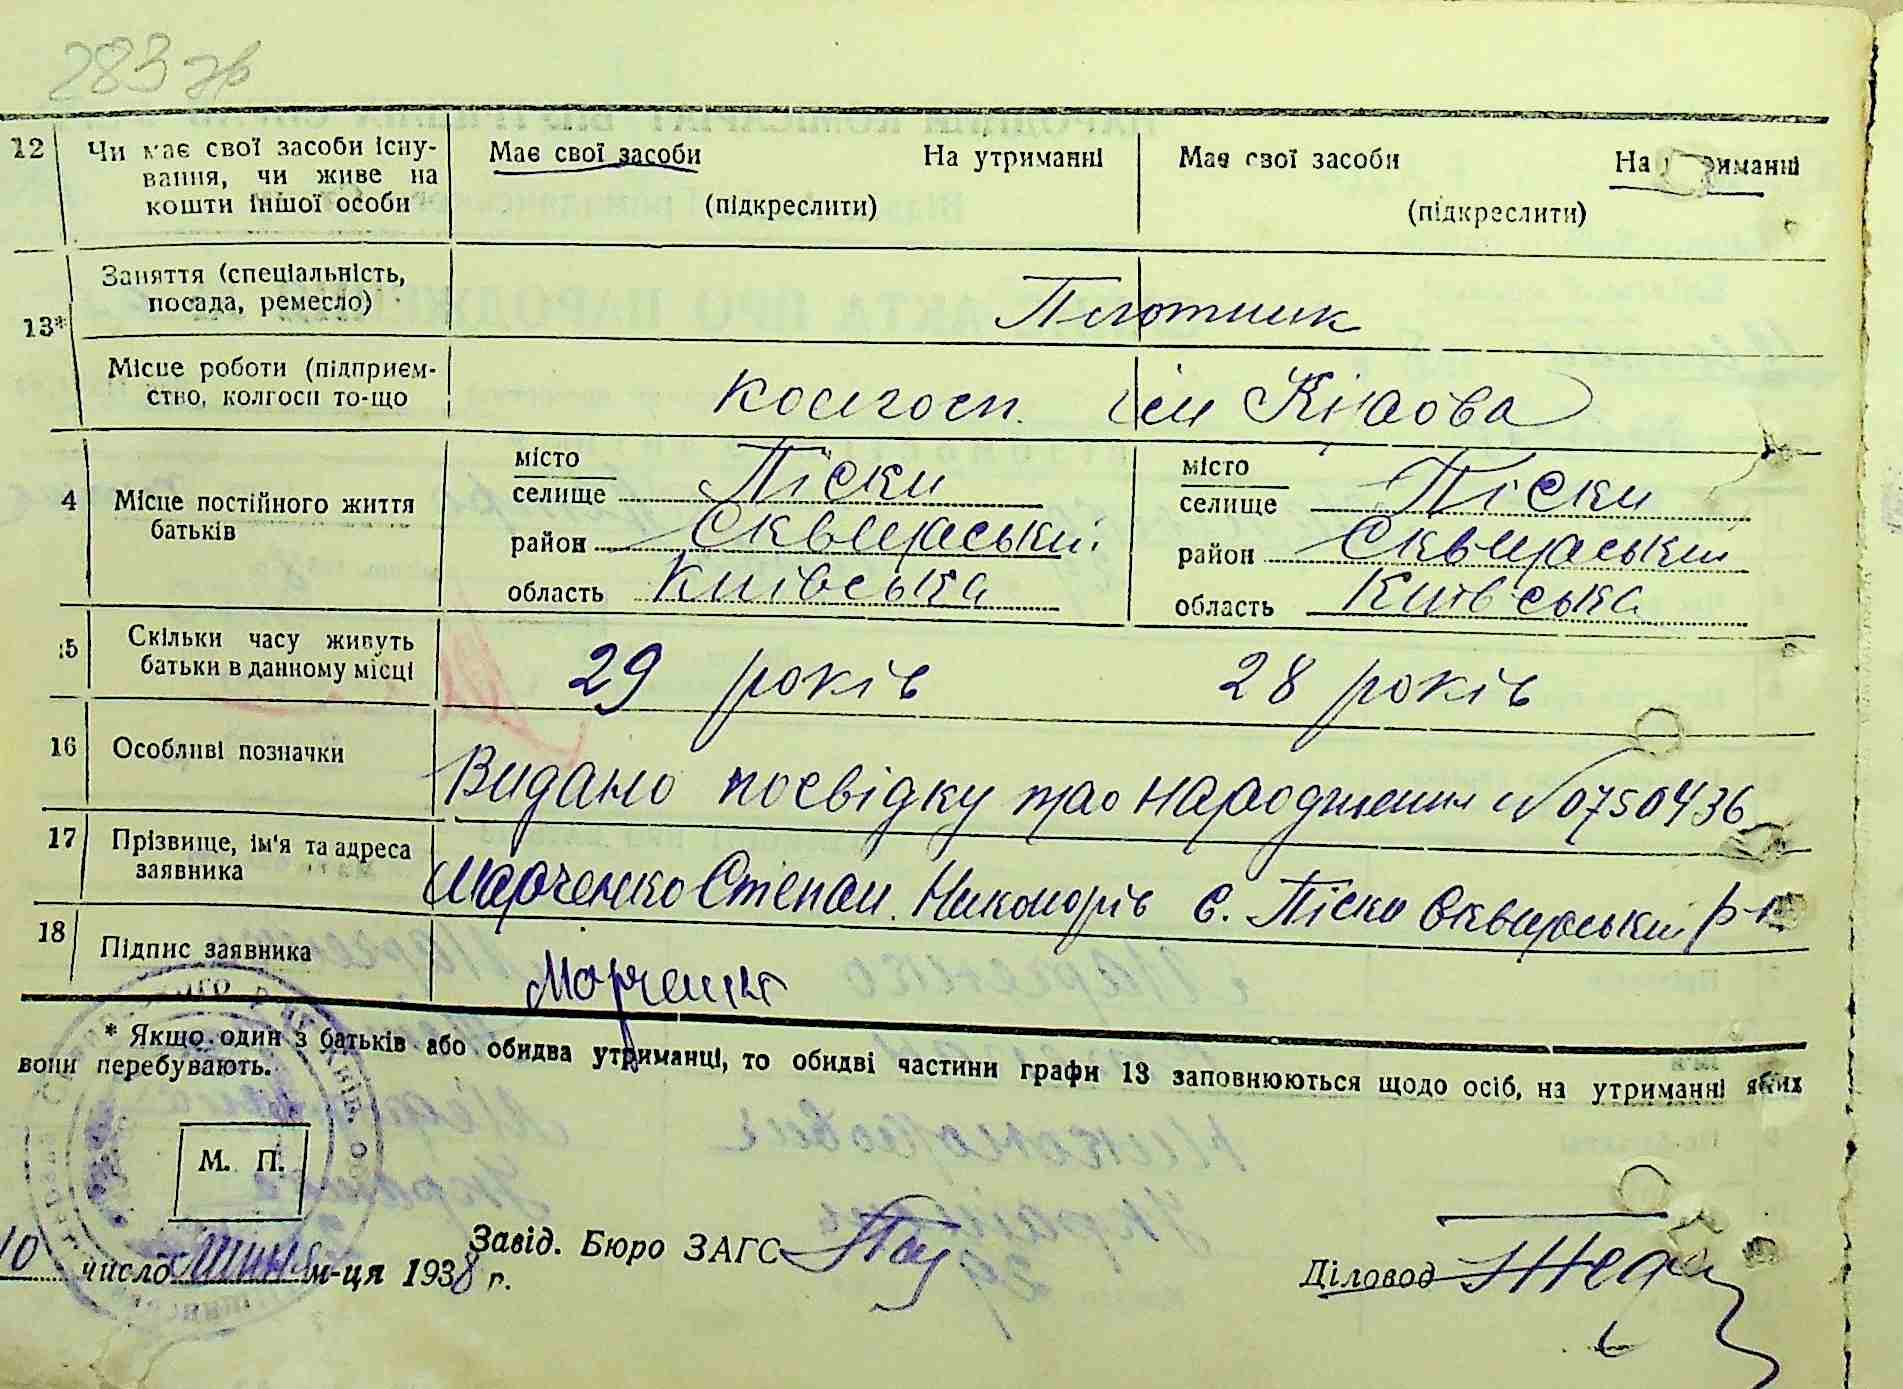 283 зв
12 Чи має свої засоби існу-
вання, чи живе на
кошти іншої особи
Має свої засоби На утриманні
(підкреслити)
Має свої засоби На утриманні
(підкреслити)
13* Заняття (спеціальність,
посада, ремесло)
Плотник
Місце роботи (підприєм-
ство, колгосп то-що
колгосп. ім Кірова
4 Місце постійного життя
батьків
місто
селище Піски
район Сквирський
область Київська
місто
селище Піски
район Сквирський
область Київська
15 Скільки часу живуть
батьки в данному місці
29 років 28 років
16 Особливі позначки
Видано посвідку про народження №0750436
17 Прізвище, ім'я та адреса
заявника
Марченко Степан. Никонорів с. Піски Сквирський р-н
18 Підпис заявника
Марченко
* Якщо один з батьків або обидва утриманці, то обидві частини графи 13 заповнюються щодо осіб, на утриманні яких
вони перебувають.
М. П.
10 число липня м-ця 1938 р.
Завід. Бюро ЗАГС
Діловод